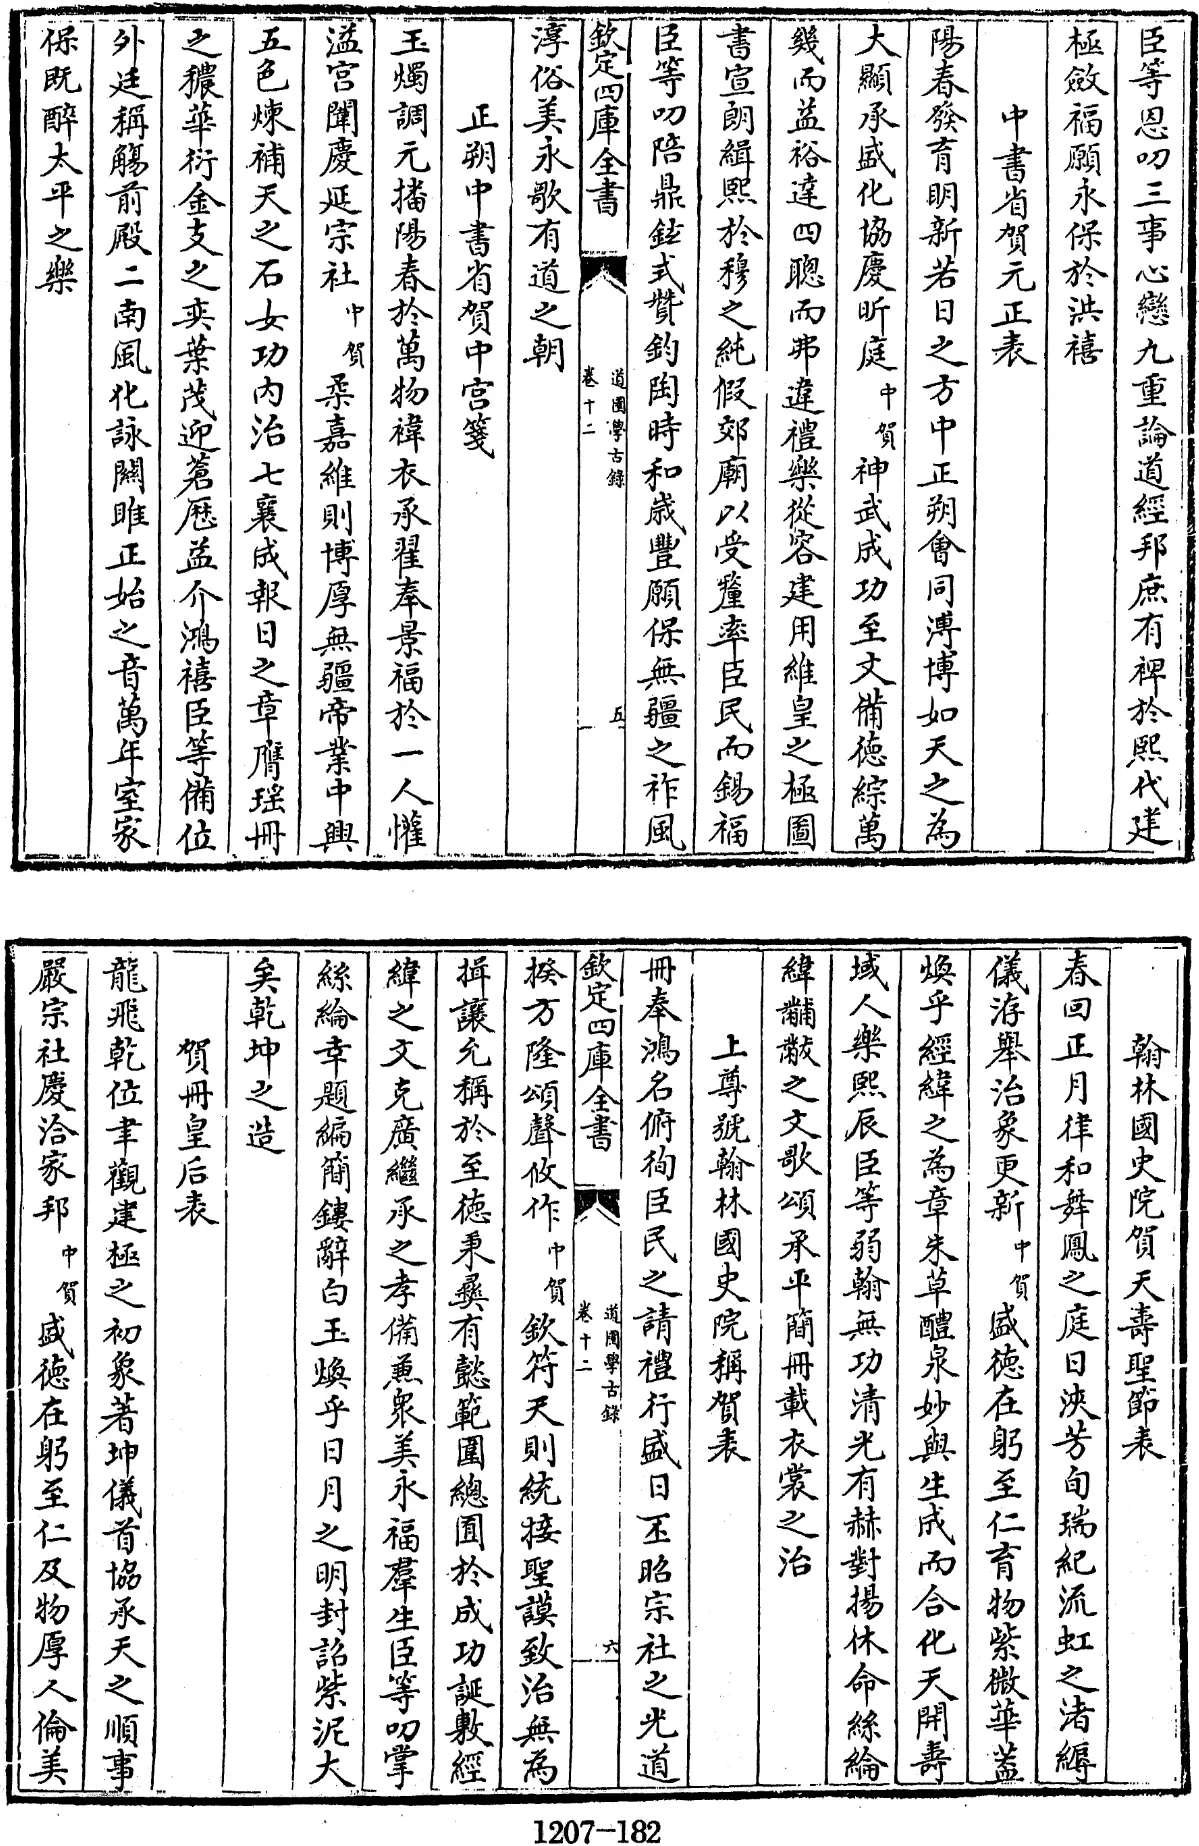 臣等恩叨三事心戀九重論道經邦庶有裨於熙代建
極斂福願永保於洪禧
中書省賀元正表
陽春發育明新若日之方中正朔會同溥博如天之為
大顯承盛化協慶昕庭中賀神武成功至文備徳綜萬
幾而益裕達四聰而弗違禮樂從容建用維皇之極圖
書宣朗緝熙於穆之純假郊廟以受釐率臣民而錫福
臣等叨陪鼎鉉式贊鈞陶時和歲豐願保無疆之祚風
欽定四庫全書
道園學古錄
卷十二
五
淳俗美永歌有道之朝
正朔中書省賀中宫箋
玉燭調元播陽春於萬物褘衣承翟奉景福於一人懽
溢宫闈慶延宗社中賀柔嘉維則博厚無疆帝業中興
五色煉補天之石女功内治七襄成報日之章膺瑶冊
之穠華衍金支之奕葉茂迎蒼厯益介鴻禧臣等備位
外廷稱觴前殿二南風化詠闗雎正始之音萬年室家
保既醉太平之樂
翰林國史院賀天壽聖節表
春回正月律和舞鳳之庭日浹芳旬瑞紀流虹之渚縟
儀洊舉治象更新中賀盛徳在躬至仁育物紫微華葢
煥乎經緯之為章朱草醴泉妙與生成而合化天開壽
域人樂熙辰臣等弱翰無功清光有赫對揚休命絲綸
緯黼黻之文歌頌承平簡冊載衣裳之治
上尊號翰林國史院稱賀表
冊奉鴻名俯徇臣民之請禮行盛日丕昭宗社之光道
欽定四庫全書
道園學古錄
卷十二
六
揆方隆頌聲攸作中賀欽符天則統接聖謨致治無為
揖讓允稱於至徳秉彞有懿範圍總囿於成功誕敷經
緯之文克廣繼承之孝備兼衆美永福羣生臣等叨掌
絲綸幸題編簡鏤辭白玉煥乎日月之明封詔紫泥大
矣乾坤之造
賀冊皇后表
龍飛乾位聿觀建極之初象著坤儀首協承天之順事
嚴宗社慶洽家邦中賀盛徳在躬至仁及物厚人倫美
1207-182